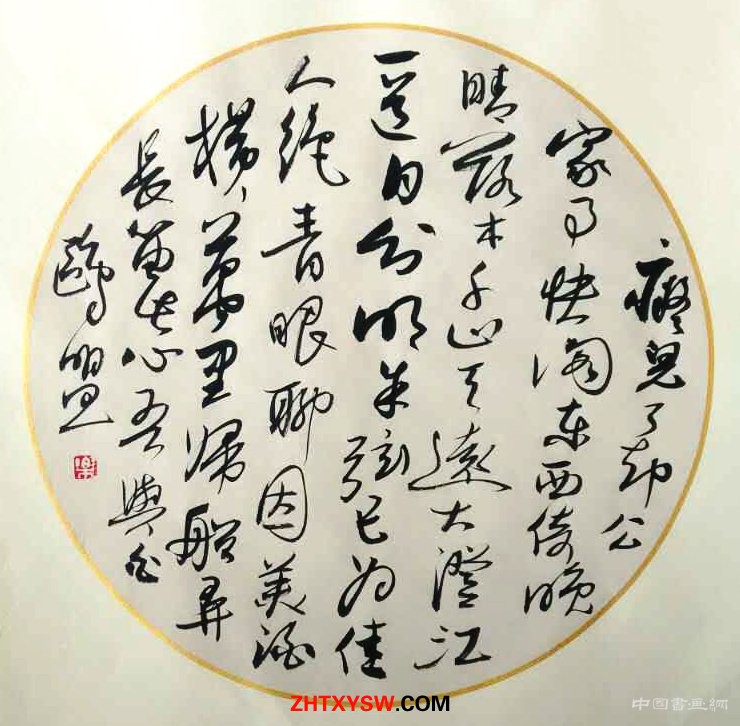 癡兒了却公
家事快閣东西倚晚
晴落木千山天遠大澄江
一道月分明朱弦已为佳
人绝青眼聊因美酒
横萬里归船弄
長笛此心吾與白
鷗盟
ZHTXYSW.COM
中国書画網